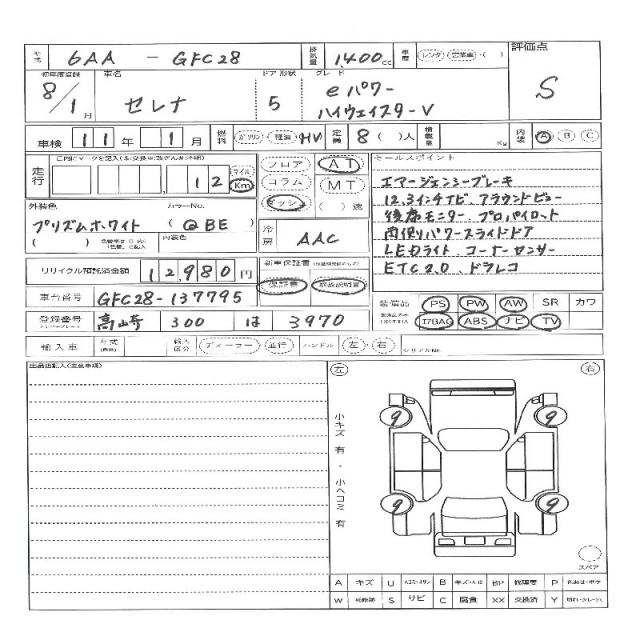 年式 6AA - GFC28 排気量 1,400cc 車歴 レンタ 営業車 ( ) 評価点
初年度登録 車名 ドア 形状 グレード
8/1月 セレナ 5 eパワー ハイウェイスターV S
車検 11年 1月 燃料 ガソリン 軽油 HV 定員 8( )人 積載量 Kg 内装 A B C
走行 12 マイル Km フロア AT セールスポイント
コラム MT エマージェンシーブレーキ
ダッシュ ( )速 12.3インチナビ、アラウンドビュー
外装色 カラーNo. 後席モニター、プロパイロット
プリズムホワイト (QBE) 冷房 AAC 両側パワースライドドア
( ) 内装色 LEDライト、コーナーセンサー
リサイクル預託済金額 12,980円 新車保証書 ETC2.0、ドラレコ
保証書 取扱説明書
車台番号 GFC28-137795 装備品 PS PW AW SR カワ
登録番号 高崎 300 は 3970 ABS ナビ TV
輸入車 年式 輸入区分 ディーラー・並行 ハンドル 左・右 シリアルNo.
出品店記入(注意事項) 左 右
小キズ有・小ヘコミ有
9 9
9 9
スペア
A キズ U B キズ・ヘコミ BP 修理歴 P
W S サビ C 腐食 XX 交換済 Y